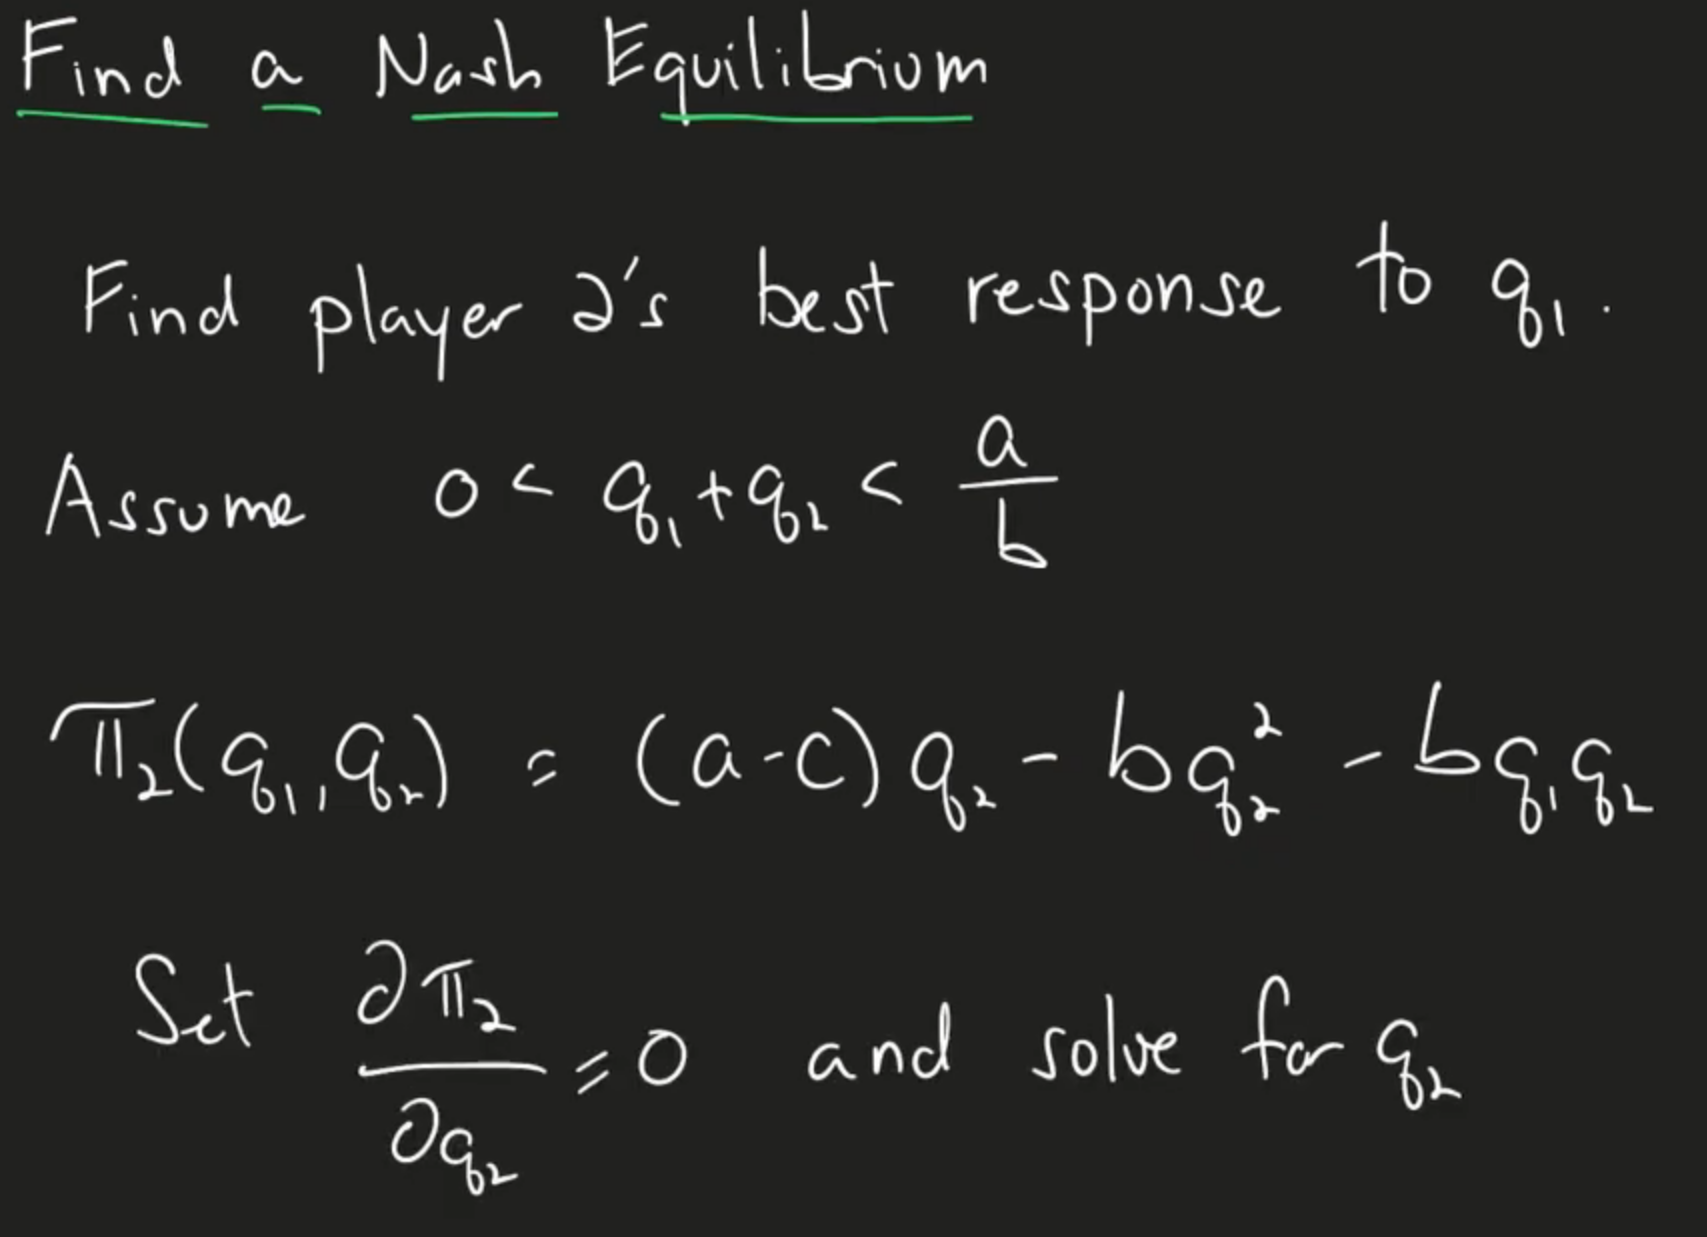 Find a Nash Equilibrium
Find player 2's best response to q₁.
Assume 0 < q₁+q₂ < a/b
π₂(q₁,q₂) = (a-c)q₂ - bq₂² - bq₁q₂
Set ∂π₂/∂q₂ = 0 and solve for q₂